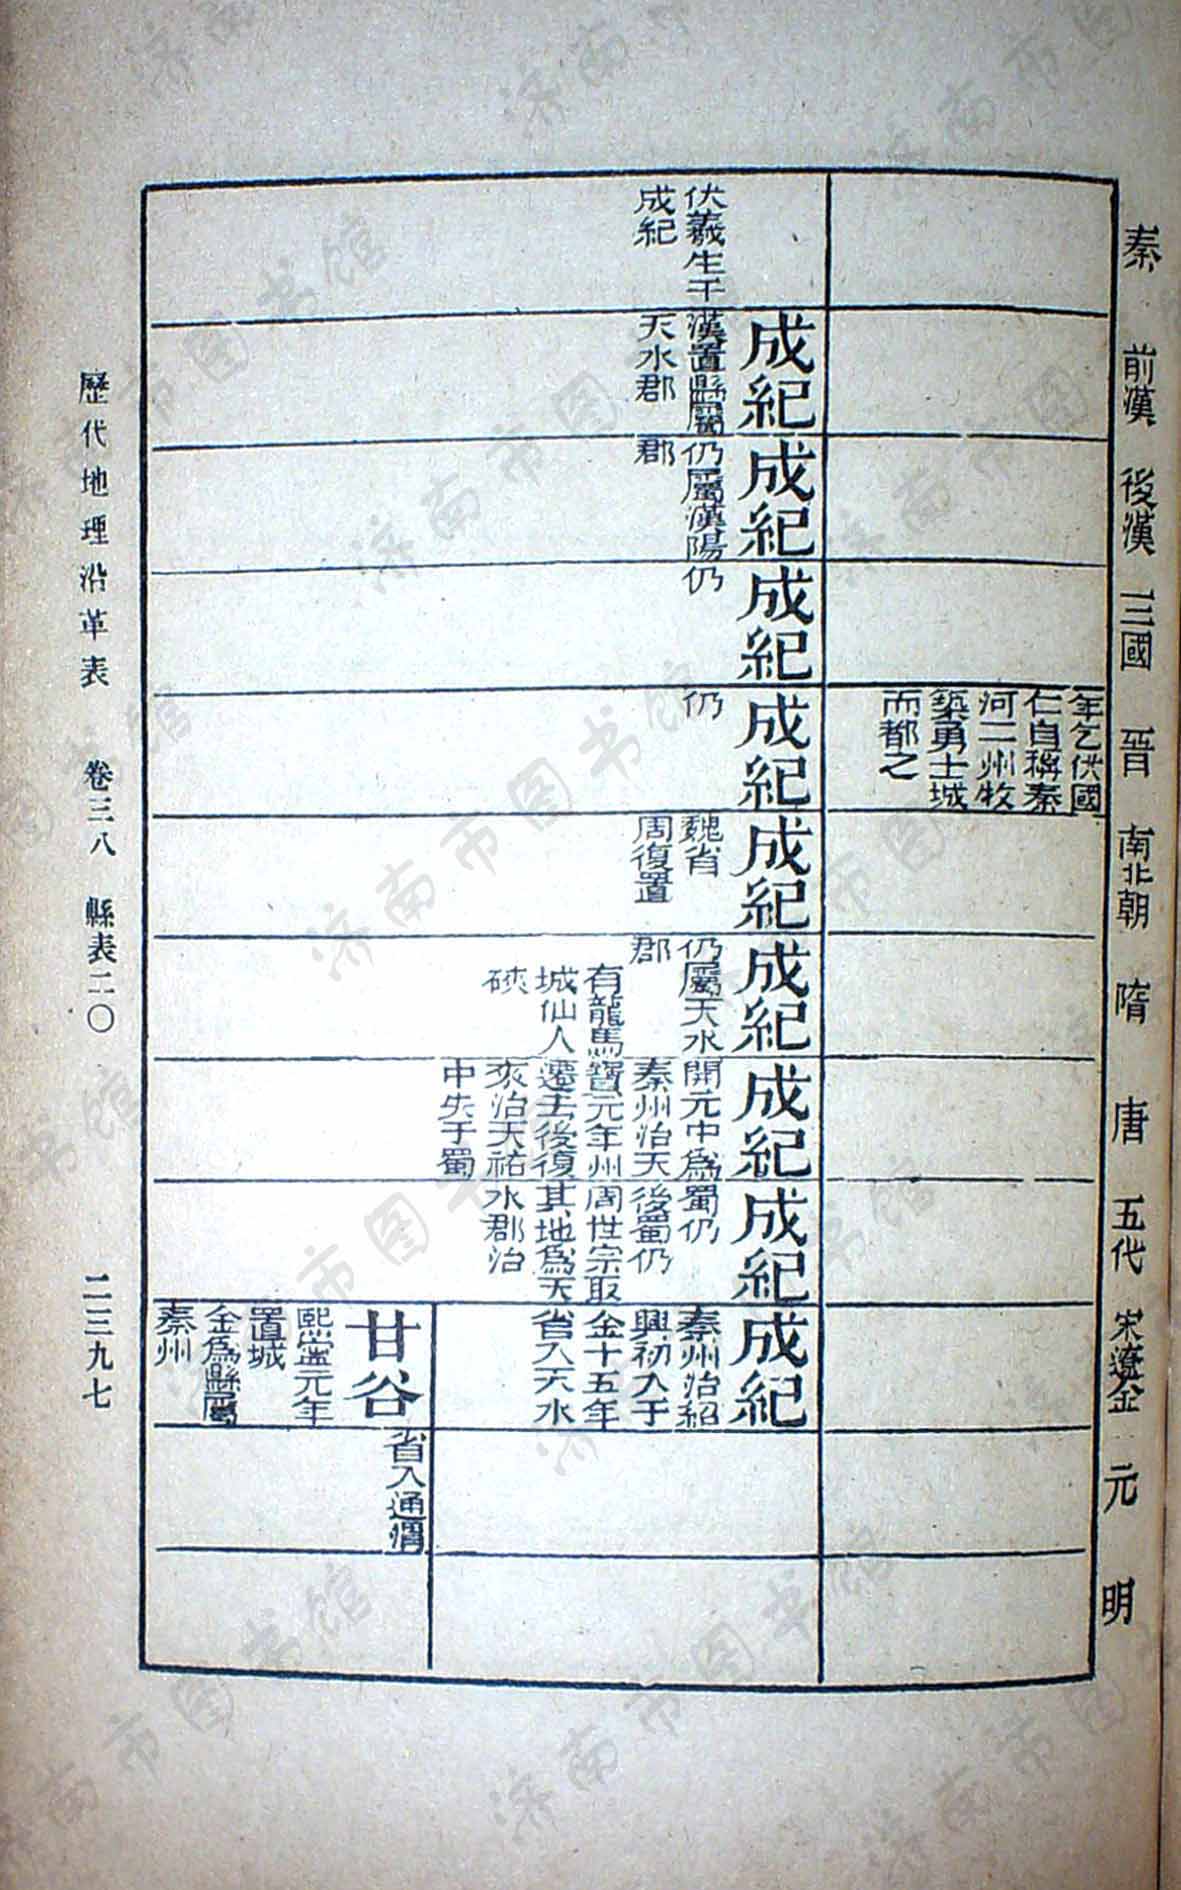 秦 前漢 後漢 三國 晉 南北朝 隋 唐 五代 宋遼金 元 明
年乞伏國
仁自稱秦
河二州牧
築勇士城
而都之
伏羲生于
成紀
成紀
漢置縣屬
天水郡
成紀
仍屬漢陽
郡
成紀
仍
成紀
仍
成紀
魏省
周復置
成紀
仍屬天水
郡
有龍馬
城仙人
硤
成紀
開元中為
秦州治天
寶元年州
遷去後復
來治天祐
中失于蜀
成紀
蜀仍
後蜀仍
周世宗取
其地為天
水郡治
成紀
秦州治紹
興初入于
金十五年
省入天水
甘谷
熙寧元年
置城
金為縣屬
秦州
省入通渭
歷代地理沿革表 卷三八 縣表二〇 二三九七
济南市图书馆